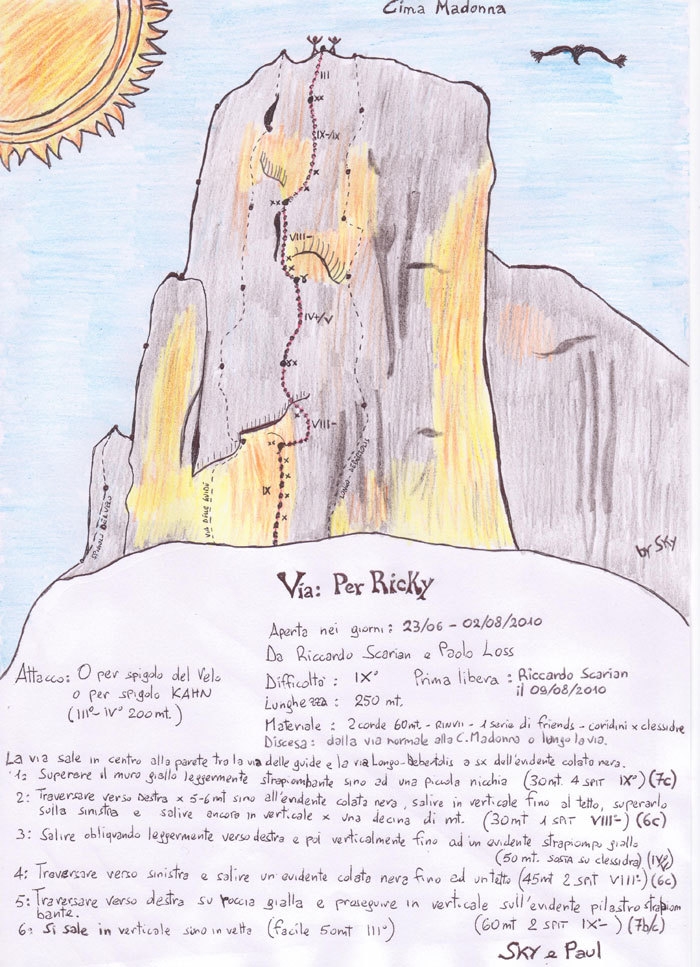 Cima Madonna
III
xx
IX-/IX
x
xx
VIII-
x
x
x
IV+/V
xx
VIII-
x
x
IX
x
x
x
SPIGOLO DEL VELO
VIA DELLE GUIDE
LONGO-DEBERTOLIS
by Sky
Via: Per Ricky
Aperta nei giorni: 23/06 - 02/08/2010
Da Riccardo Scarian e Paolo Loss
Attacco: O per spigolo del Velo
o per spigolo KAHN
(III° IV° 200mt.)
Difficoltà: IX° Prima libera: Riccardo Scarian
il 09/08/2010
Lunghezza: 250 mt.
Materiale: 2 corde 60mt. - RINVII - 1 serie di friends - cordini x clessidre
Discesa: dalla via normale alla C. Madonna o lungo la via.
La via sale in centro alla parete tra la via delle guide e la via Longo-Debertolis a sx dell'evidente colata nera.
1: Superare il muro giallo leggermente strapiombante sino ad una piccola nicchia (30mt. 4 SPIT IX°) (7c)
2: Traversare verso destra x 5-6 mt sino all'evidente colata nera, salire in verticale fino al tetto, superarlo
sulla sinistra e salire ancora in verticale x una decina di mt. (30mt 1 SPIT VIII-) (6c)
3: Salire obliquando leggermente verso destra e poi verticalmente fino ad un evidente strapiombo giallo
(50 mt. sosta su clessidra)
4: Traversare verso sinistra e salire un evidente colata nera fino ad un tetto (45mt 2 SPIT VIII-) (6c)
5: Traversare verso destra su roccia gialla e proseguire in verticale sull'evidente pilastro strapiom
bante. (60mt 2 SPIT IX-) (7b/c)
6: Si sale in verticale sino in vetta (facile 50mt III°)
Sky e Paul